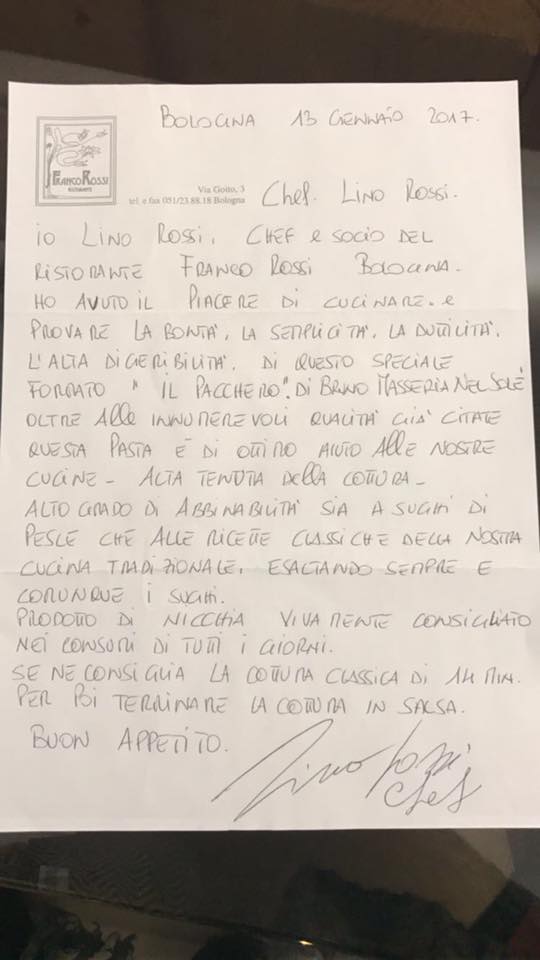 BOLOGNA 13 GENNAIO 2017.
FRANCO ROSSI
RISTORANTE
Via Goito, 3
tel. e fax 051/23.88.18 Bologna
Chef. LINO ROSSI.
IO LINO ROSSI, CHEF e SOCIO DEL
RISTORANTE FRANCO ROSSI BOLOGNA.
HO AVUTO IL PIACERE DI CUCINARE. e
PROVARE LA BONTA', LA SEMPLICITA', LA DUTTILITA',
L'ALTA DIGERIBILITA'. DI QUESTO SPECIALE
FORMATO "IL PACCHERO". DI BRUNO MASSERIA NEL SOLE
OLTRE ALLE INNUMEREVOLI QUALITA' GIA' CITATE
QUESTA PASTA E' DI OTTIMO AIUTO ALLE NOSTRE
CUCINE - ALTA TENUTA DELLA COTTURA -
ALTO GRADO DI ABBINABILITA' SIA A SUGHI DI
PESCE CHE ALLE RICETTE CLASSICHE DELLA NOSTRA
CUCINA TRADIZIONALE, ESALTANDO SEMPRE E
COMUNQUE I SUGHI.
PRODOTTO DI NICCHIA VIVAMENTE CONSIGLIATO
NEI CONSUMI DI TUTTI I GIORNI.
SE NE CONSIGLIA LA COTTURA CLASSICA DI 14 MIN.
PER POI TERMINARE LA COTTURA IN SALSA.
BUON APPETITO.
Lino Rossi
Chef